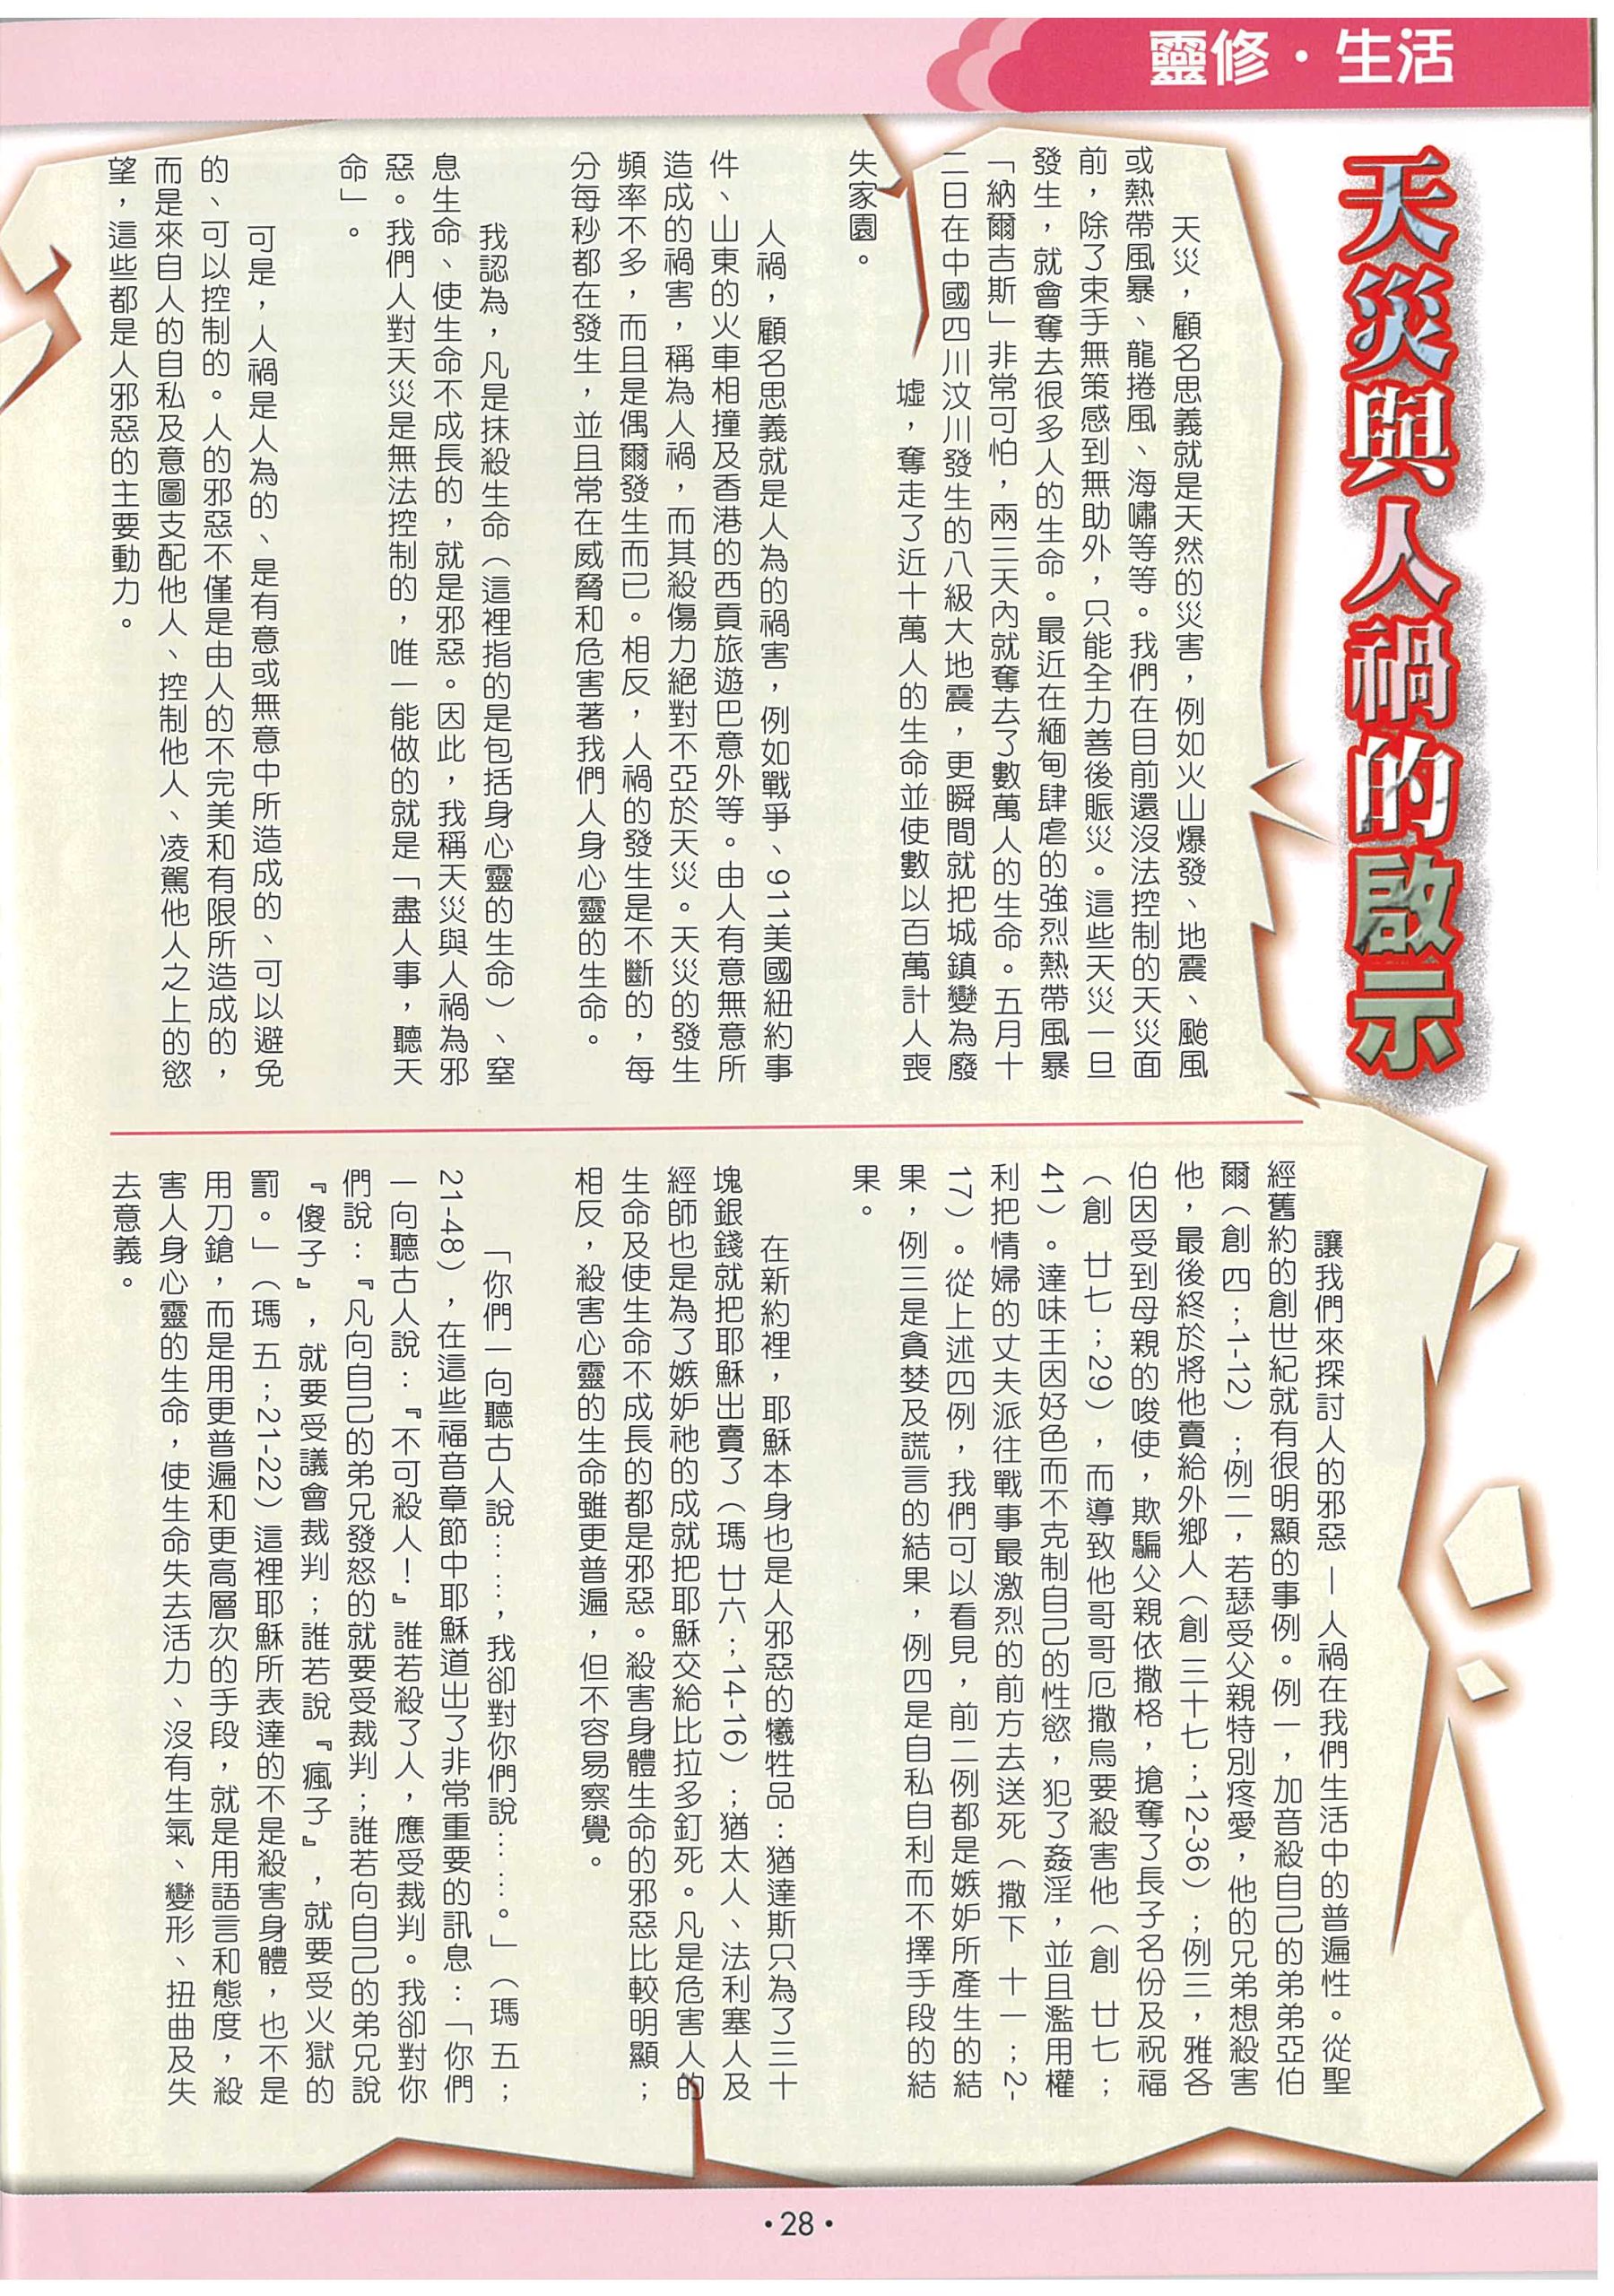 靈修·生活
天災與人禍的啟示
天災，顧名思義就是天然的災害，例如火山爆發、地震、颱風
或熱帶風暴、龍捲風、海嘯等等。我們在目前還沒法控制的天災面
前，除了束手無策感到無助外，只能全力善後賑災。這些天災一旦
發生，就會奪去很多人的生命。最近在緬甸肆虐的強烈熱帶風暴
「納爾吉斯」非常可怕，兩三天內就奪去了數萬人的生命。五月十
二日在中國四川汶川發生的八級大地震，更瞬間就把城鎮變為廢
墟，奪走了近十萬人的生命並使數以百萬計人喪
失家園。
人禍，顧名思義就是人為的禍害，例如戰爭、911美國紐約事
件、山東的火車相撞及香港的西貢旅遊巴意外等。由人有意無意所
造成的禍害，稱為人禍，而其殺傷力絕對不亞於天災。天災的發生
頻率不多，而且是偶爾發生而已。相反，人禍的發生是不斷的，每
分每秒都在發生，並且常在威脅和危害著我們人身心靈的生命。
我認為，凡是抹殺生命（這裡指的是包括身心靈的生命）、窒
息生命、使生命不成長的，就是邪惡。因此，我稱天災與人禍為邪
惡。我們人對天災是無法控制的，唯一能做的就是「盡人事，聽天
命」。
可是，人禍是人為的、是有意或無意中所造成的、可以避免
的、可以控制的。人的邪惡不僅是由人的不完美和有限所造成的，
而是來自人的自私及意圖支配他人、控制他人、凌駕他人之上的慾
望，這些都是人邪惡的主要動力。
讓我們來探討人的邪惡—人禍在我們生活中的普遍性。從聖
經舊約的創世紀就有很明顯的事例。例一，加音殺自己的弟弟亞伯
爾（創 四；1-12）；例二，若瑟受父親特別疼愛，他的兄弟想殺害
他，最後終於將他賣給外鄉人（創 三十七；12-36）；例三，雅各
伯因受到母親的唆使，欺騙父親依撒格，搶奪了長子名份及祝福
（創 廿七；29），而導致他哥哥厄撒烏要殺害他（創 廿七；
41）。達味王因好色而不克制自己的性慾，犯了姦淫，並且濫用權
利把情婦的丈夫派往戰事最激烈的前方去送死（撒下 十一；2-
17）。從上述四例，我們可以看見，前二例都是嫉妒所產生的結
果，例三是貪婪及謊言的結果，例四是自私自利而不擇手段的結
果。
在新約裡，耶穌本身也是人邪惡的犧牲品：猶達斯只為了三十
塊銀錢就把耶穌出賣了（瑪 廿六；14-16）；猶太人、法利塞人及
經師也是為了嫉妒祂的成就把耶穌交給比拉多釘死。凡是危害人的
生命及使生命不成長的都是邪惡。殺害身體生命的邪惡比較明顯；
相反，殺害心靈的生命雖更普遍，但不容易察覺。
「你們一向聽古人說……，我卻對你們說……。」（瑪 五；
21-48），在這些福音章節中耶穌道出了非常重要的訊息：「你們
一向聽古人說：『不可殺人！』誰若殺了人，應受裁判。我卻對你
們說：『凡向自己的弟兄發怒的就要受裁判；誰若向自己的弟兄說
『傻子』，就要受議會裁判；誰若說『瘋子』，就要受火獄的
罰。」（瑪 五；21-22）這裡耶穌所表達的不是殺害身體，也不是
用刀鎗，而是用更普遍和更高層次的手段，就是用語言和態度，殺
害人身心靈的生命，使生命失去活力、沒有生氣、變形、扭曲及失
去意義。
·28·